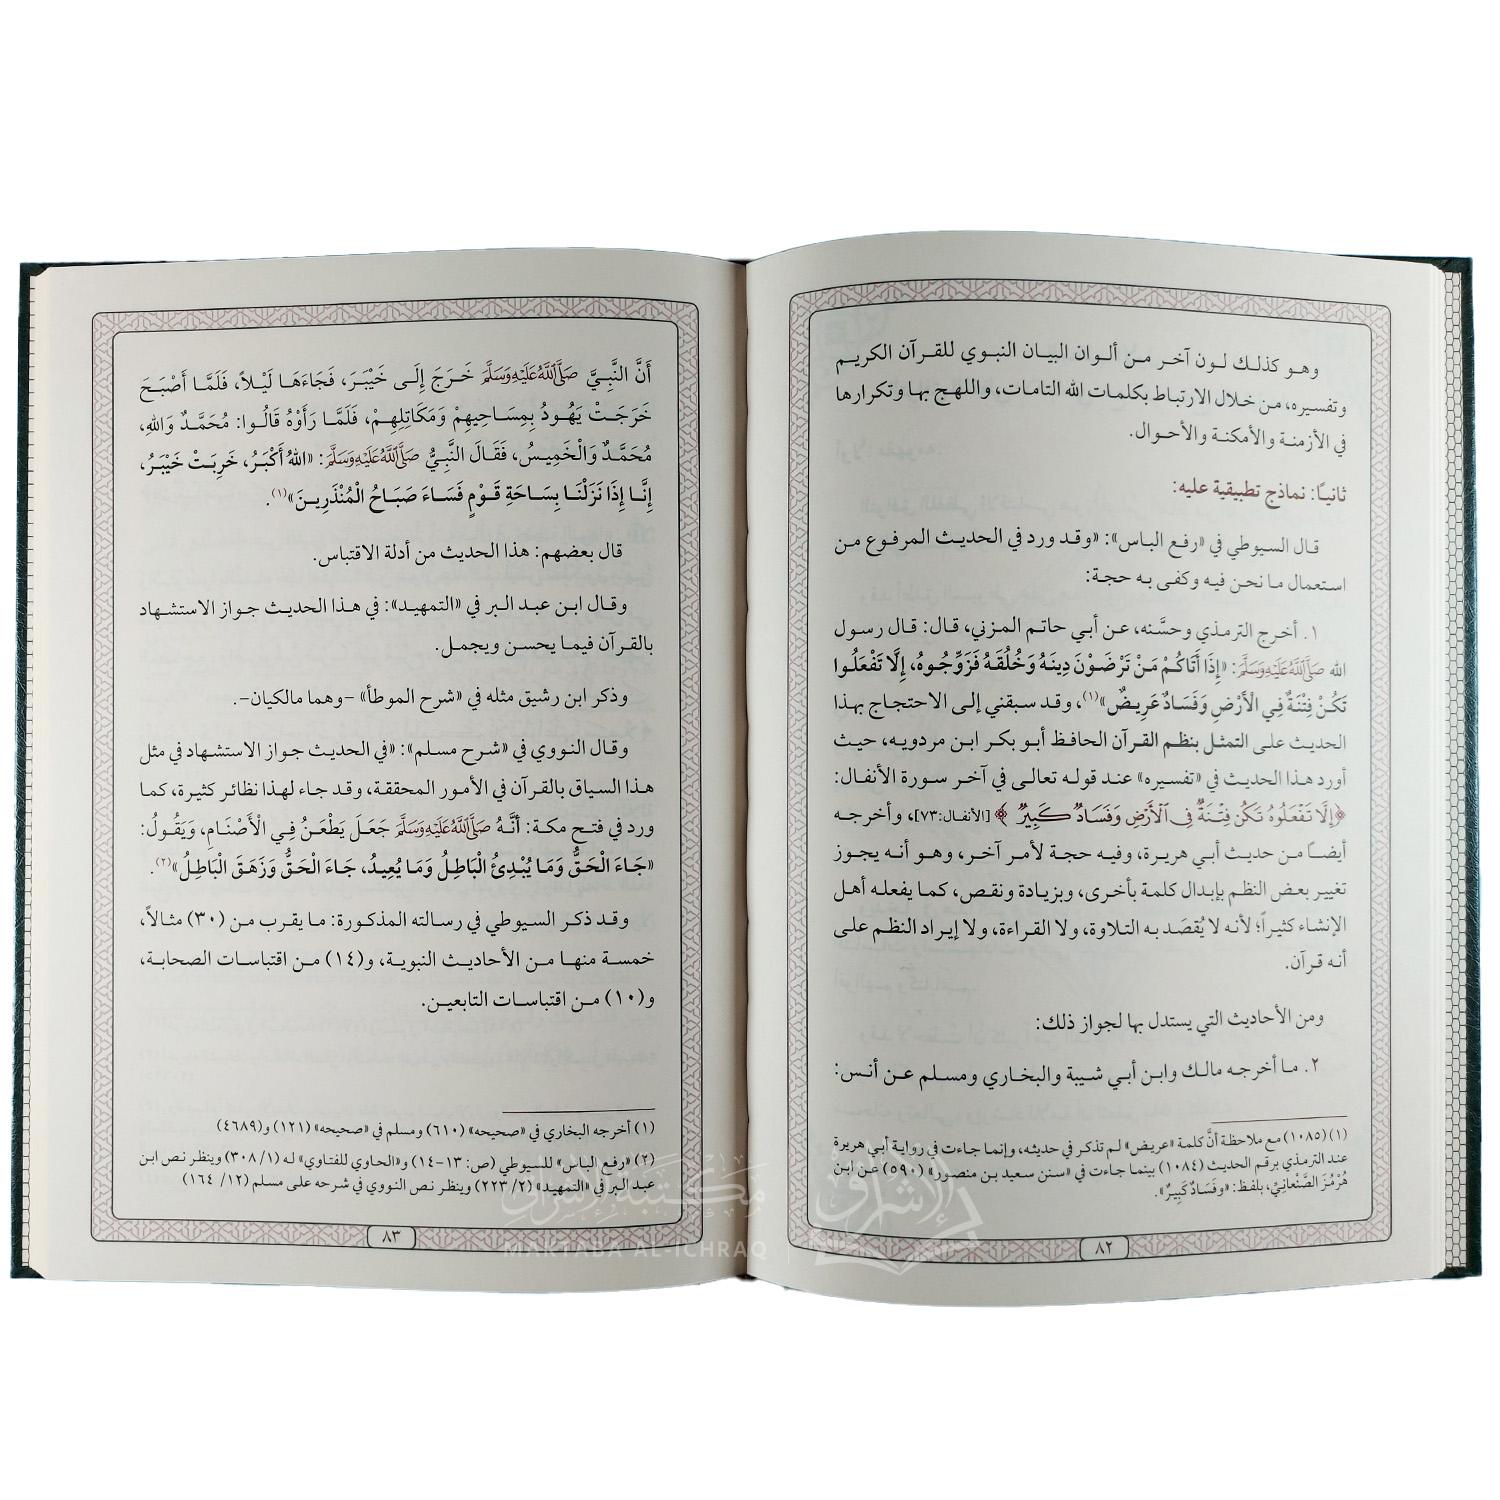 وهو كذلك لون آخر من ألوان البيان النبوي للقرآن الكريم
وتفسيره، من خلال الارتباط بكلمات الله التامات، واللهج بها وتكرارها
في الأزمنة والأمكنة والأحوال.
ثانيًا: نماذج تطبيقية عليه:
قال السيوطي في «رفع الباس»: «وقد ورد في الحديث المرفوع من
استعمال ما نحن فيه وكفى به حجة:
١. أخرج الترمذي وحسَّنه، عن أبي حاتم المزني، قال: قال رسول
الله صَلَّى اللَّهُ عَلَيْهِ وَسَلَّمَ: «إِذَا أَتَاكُمْ مَنْ تَرْضَوْنَ دِينَهُ وَخُلُقَهُ فَزَوِّجُوهُ، إِلَّا تَفْعَلُوا
تَكُنْ فِتْنَةٌ فِي الْأَرْضِ وَفَسَادٌ عَرِيضٌ»(١)، وقد سبقني إلى الاحتجاج بهذا
الحديث على التمثل بنظم القرآن الحافظ أبو بكر ابن مردويه، حيث
أورد هذا الحديث في «تفسيره» عند قوله تعالى في آخر سورة الأنفال:
﴿إِلَّا تَفْعَلُوهُ تَكُن فِتْنَةٌ فِي ٱلْأَرْضِ وَفَسَادٌ كَبِيرٌ﴾ [الأنفال:٧٣]، وأخرجه
أيضًا من حديث أبي هريرة، وفيه حجة لأمر آخر، وهو أنه يجوز
تغيير بعض النظم بإبدال كلمة بأخرى، وبزيادة ونقص، كما يفعله أهل
الإنشاء كثيرًا؛ لأنه لا يُقصَد به التلاوة، ولا القراءة، ولا إيراد النظم على
أنه قرآن.
ومن الأحاديث التي يستدل بها لجواز ذلك:
٢. ما أخرجه مالك وابن أبي شيبة والبخاري ومسلم عن أنس:
(١) (١٠٨٥) مع ملاحظة أنَّ كلمة «عريض» لم تذكر في حديثه، وإنما جاءت في رواية أبي هريرة
عند الترمذي برقم الحديث (١٠٨٤) بينما جاءت في «سنن سعيد بن منصور» (٥٩٠) عن ابن
هُرْمُزَ الصَّنْعانِيِّ، بلفظ: «وفَسَادٌ كَبِيرٌ».
٨٢
أَنَّ النَّبِيَّ صَلَّى اللَّهُ عَلَيْهِ وَسَلَّمَ خَرَجَ إِلَى خَيْبَرَ، فَجَاءَهَا لَيْلاً، فَلَمَّا أَصْبَحَ
خَرَجَتْ يَهُودُ بِمِسَاحِيهِمْ وَمَكَاتِلِهِمْ، فَلَمَّا رَأَوْهُ قَالُوا: مُحَمَّدٌ وَاللهِ،
مُحَمَّدٌ وَالْخَمِيسُ، فَقَالَ النَّبِيُّ صَلَّى اللَّهُ عَلَيْهِ وَسَلَّمَ: «اللهُ أَكْبَرُ، خَرِبَتْ خَيْبَرُ،
إِنَّا إِذَا نَزَلْنَا بِسَاحَةِ قَوْمٍ فَسَاءَ صَبَاحُ الْمُنْذَرِينَ»(١).
قال بعضهم: هذا الحديث من أدلة الاقتباس.
وقال ابن عبد البر في «التمهيد»: في هذا الحديث جواز الاستشهاد
بالقرآن فيما يحسن ويجمل.
وذكر ابن رشيق مثله في «شرح الموطأ» -وهما مالكيان-.
وقال النووي في «شرح مسلم»: «في الحديث جواز الاستشهاد في مثل
هذا السياق بالقرآن في الأمور المحققة، وقد جاء لهذا نظائر كثيرة، كما
ورد في فتح مكة: أنَّهُ صَلَّى اللَّهُ عَلَيْهِ وَسَلَّمَ جَعَلَ يَطْعَنُ فِي الْأَصْنَامِ، وَيَقُولُ:
«جَاءَ الْحَقُّ وَمَا يُبْدِئُ الْبَاطِلُ وَمَا يُعِيدُ، جَاءَ الْحَقُّ وَزَهَقَ الْبَاطِلُ»(٢).
وقد ذكر السيوطي في رسالته المذكورة: ما يقرب من (٣٠) مثالاً،
خمسة منها من الأحاديث النبوية، و(١٤) من اقتباسات الصحابة،
و(١٠) من اقتباسات التابعين.
(١) أخرجه البخاري في «صحيحه» (٦١٠) ومسلم في «صحيحه» (١٢١) و(٤٦٨٩)
(٢) «رفع الباس» للسيوطي (ص: ١٣-١٤) و«الحاوي للفتاوي» له (١/ ٣٠٨) وينظر نص ابن
عبد البر في «التمهيد» (٢/ ٢٢٣) وينظر نص النووي في شرحه على مسلم (١٢/ ١٦٤)
٨٣
مكتبة الإشراق
MAKTABA AL-ICHRAQ
الإشراق